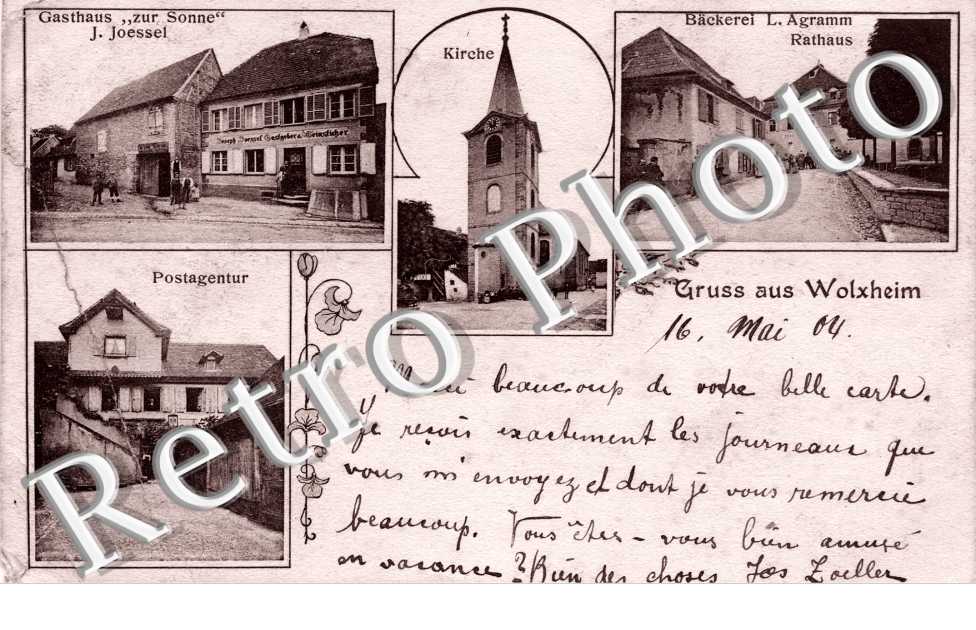 Gasthaus „zur Sonne“
J. Joessel
Kirche
Bäckerei L. Agramm
Rathaus
Joseph Joessel Gastgeber u. Weinsticher
Postagentur
Gruss aus Wolxheim
16. Mai 04.
beaucoup de votre belle carte.
je reçois exactement les journeaux que
vous m'envoyez et dont je vous remercie
beaucoup. Vous êtes-vous bien amusé
en vacance? Bien des choses Jos Zoeller
Retro Photo